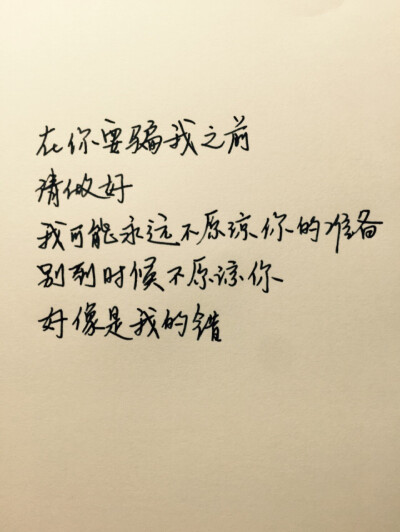 在你要骗我之前
请做好
我可能永远不原谅你的准备
别到时候不原谅你
好像是我的错